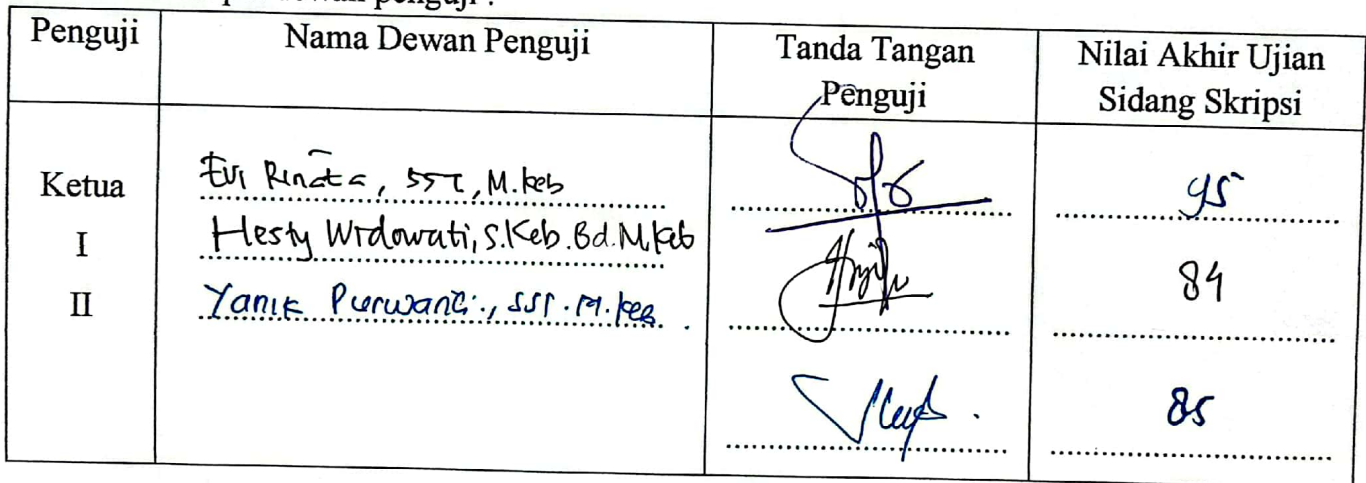 dewan penguji :
Penguji Nama Dewan Penguji Tanda Tangan Penguji Nilai Akhir Ujian Sidang Skripsi
Ketua Evi Rinata, SST, M.Keb 95
I Hesty Widowati, S.Keb.Bd.M.Keb 84
II Yanik Purwanti, SST.M.Keb 85